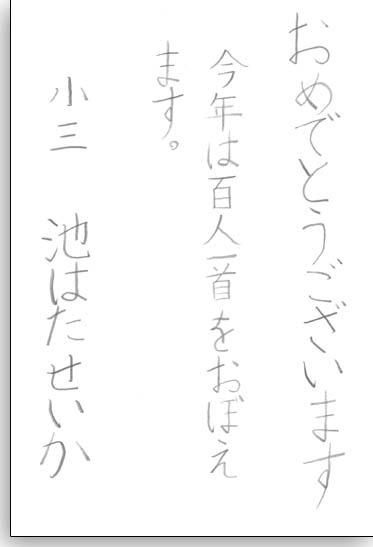 おめでとうございます
今年は百人一首をおぼえ
ます。
小三 池はたせいか